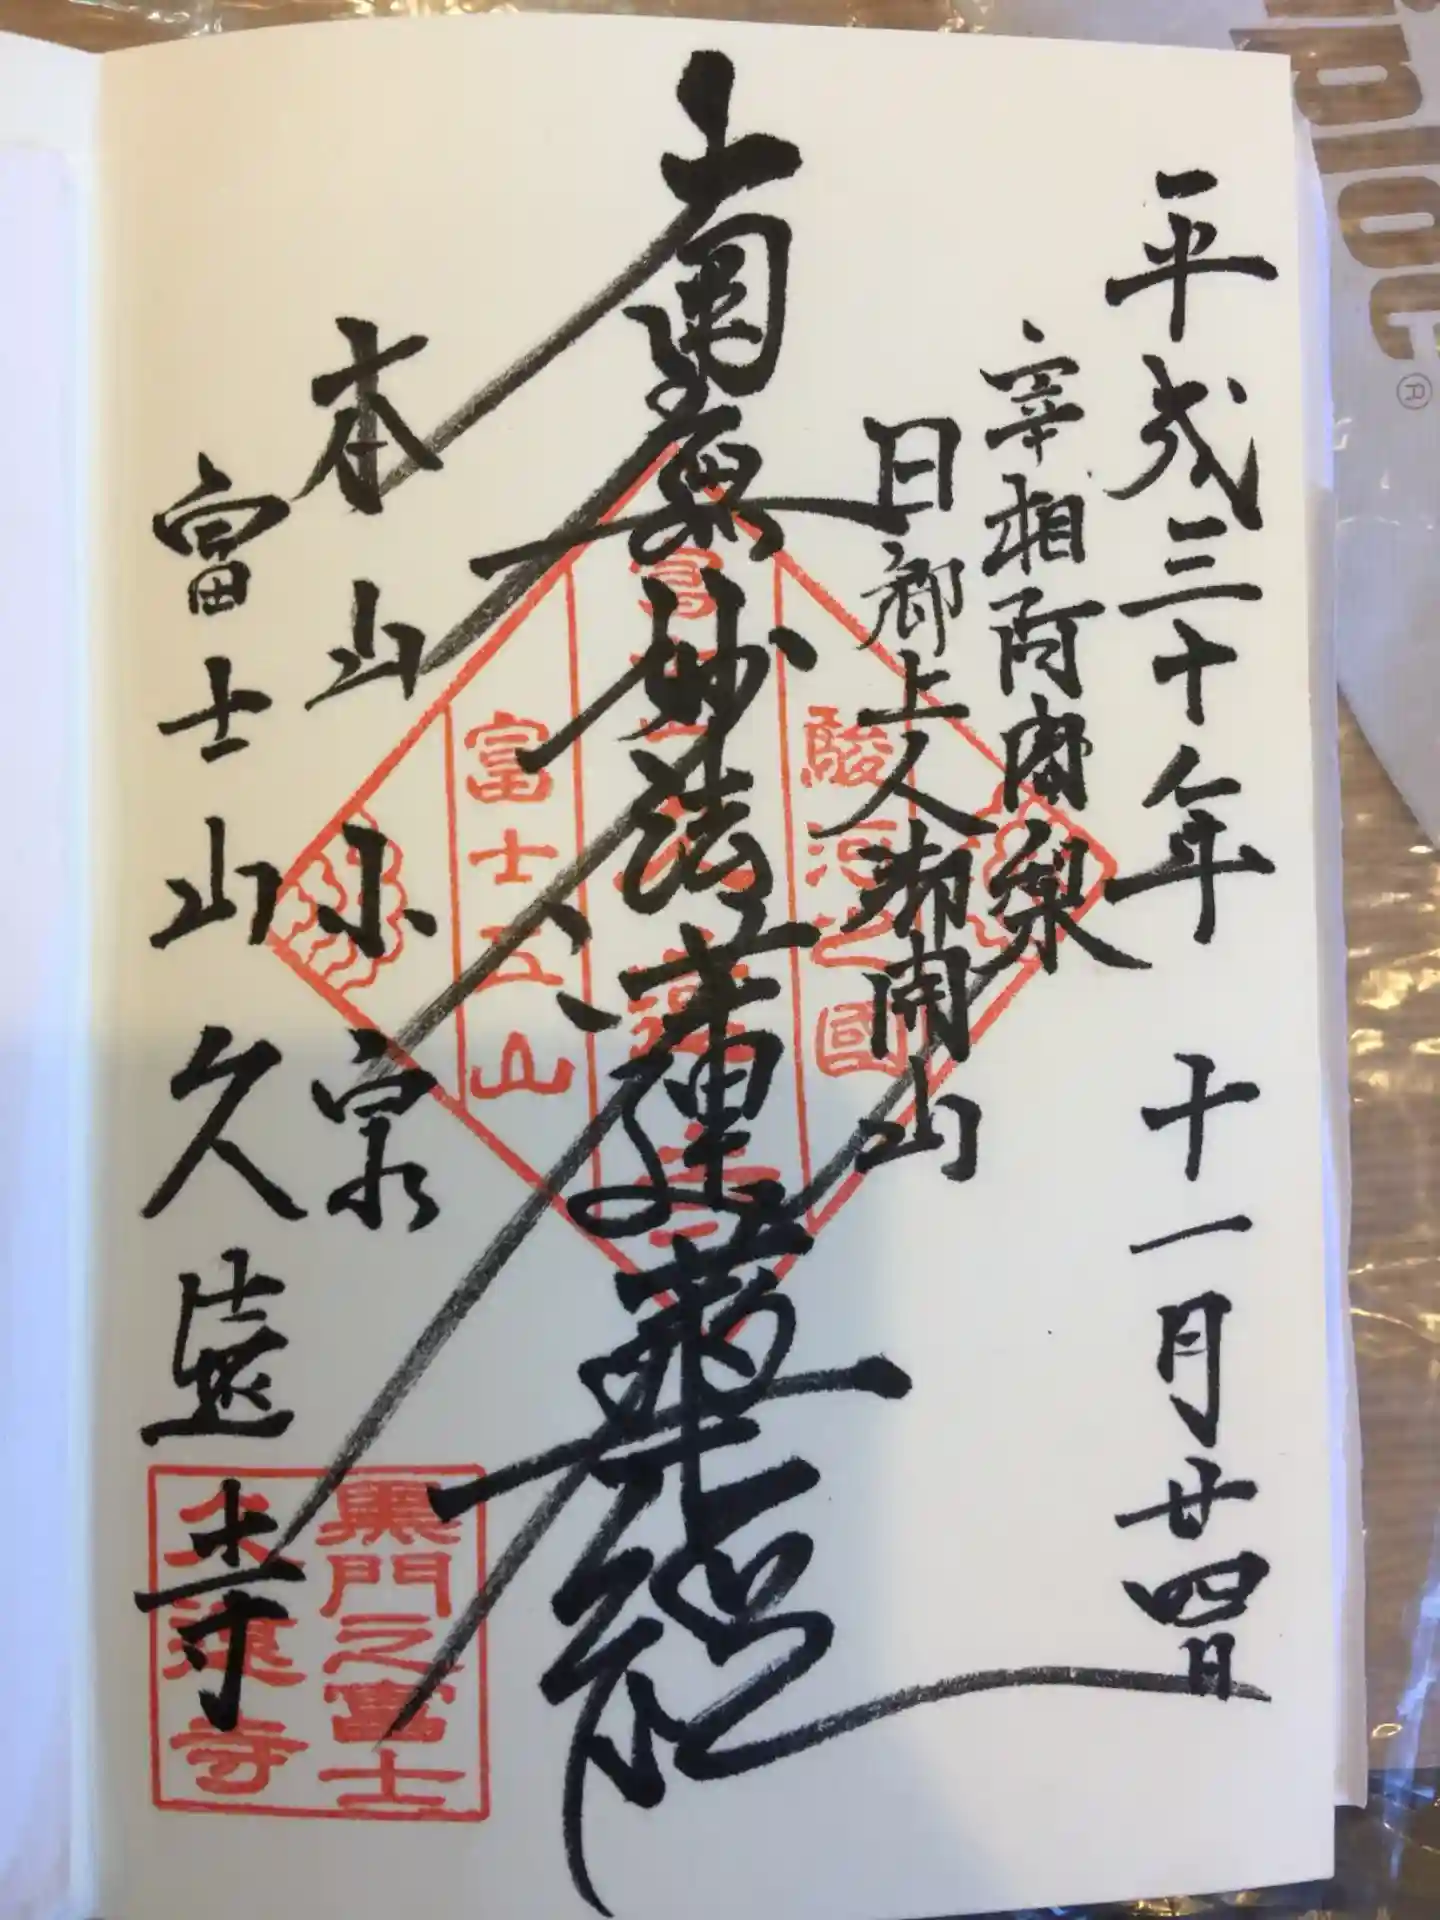 平成三十年 十一月廿四日
宰相阿闍梨
日郷上人御開山
南無妙法蓮華経
本山 小泉
富士山久遠寺
駿河之國
富士五山
黒門之富士
久遠寺